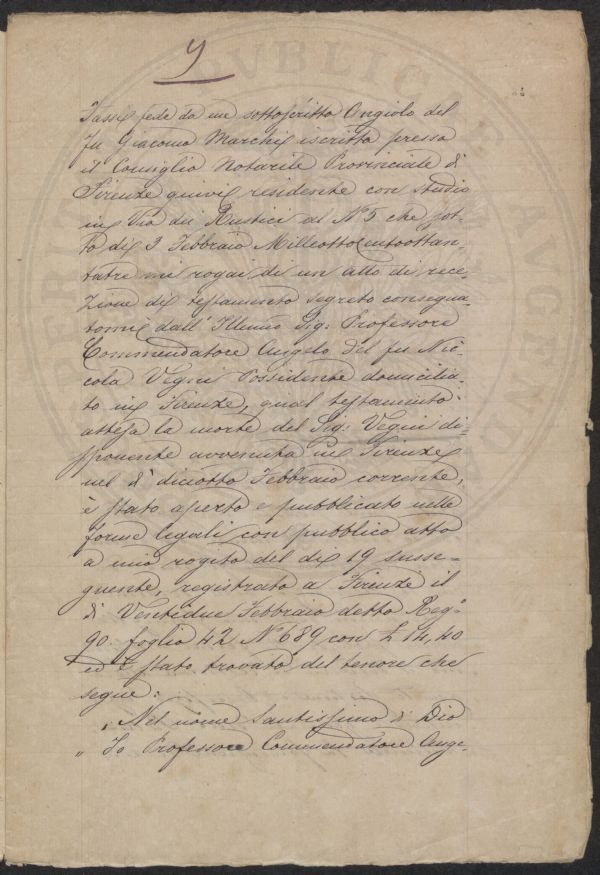 Fassi fede da me sottoscritto Angiolo del
fu Giacomo Marchi iscritto presso
il Consiglio Notarile Provinciale di
Firenze quivi residente con studio
in Via dei Rustici al N° 5 che sot-
to dì 3 Febbraio Milleottocentoottan-
tatre mi rogai di un atto di rece-
zione di testamento segreto consegna-
tomi dall' Illmo Sig: Professore
Commendatore Angelo del fu Nic-
cola Vegni Possidente domicilia-
to in Firenze, qual testamento
attesa la morte del Sig: Vegni di-
sponente avvenuta in Firenze
nel dì diciotto Febbraio corrente,
è stato aperto e pubblicato nelle
forme legali con pubblico atto
a mio rogito del dì 19 susse-
guente, registrato a Firenze il
dì Ventidue Febbraio detto Reg°
90. foglio 42 N° 689 con £ 14,40
ed è stato trovato del tenore che
segue:
„ Nel nome Santissimo di Dio
„ Io Professore Commendatore Ange-